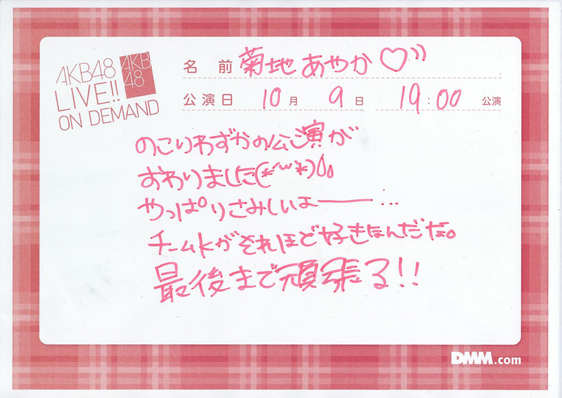 AKB48
LIVE!!
ON DEMAND
AKB
48
名 前 菊地あやか♡
公演日 10月 9日 19:00 公演
のこりわずかの公演が
おわりました(*´˘`*)
やっぱりさみしいよー...
チームKがそれほど好きなんだな。
最後まで頑張る!!
DMM.com